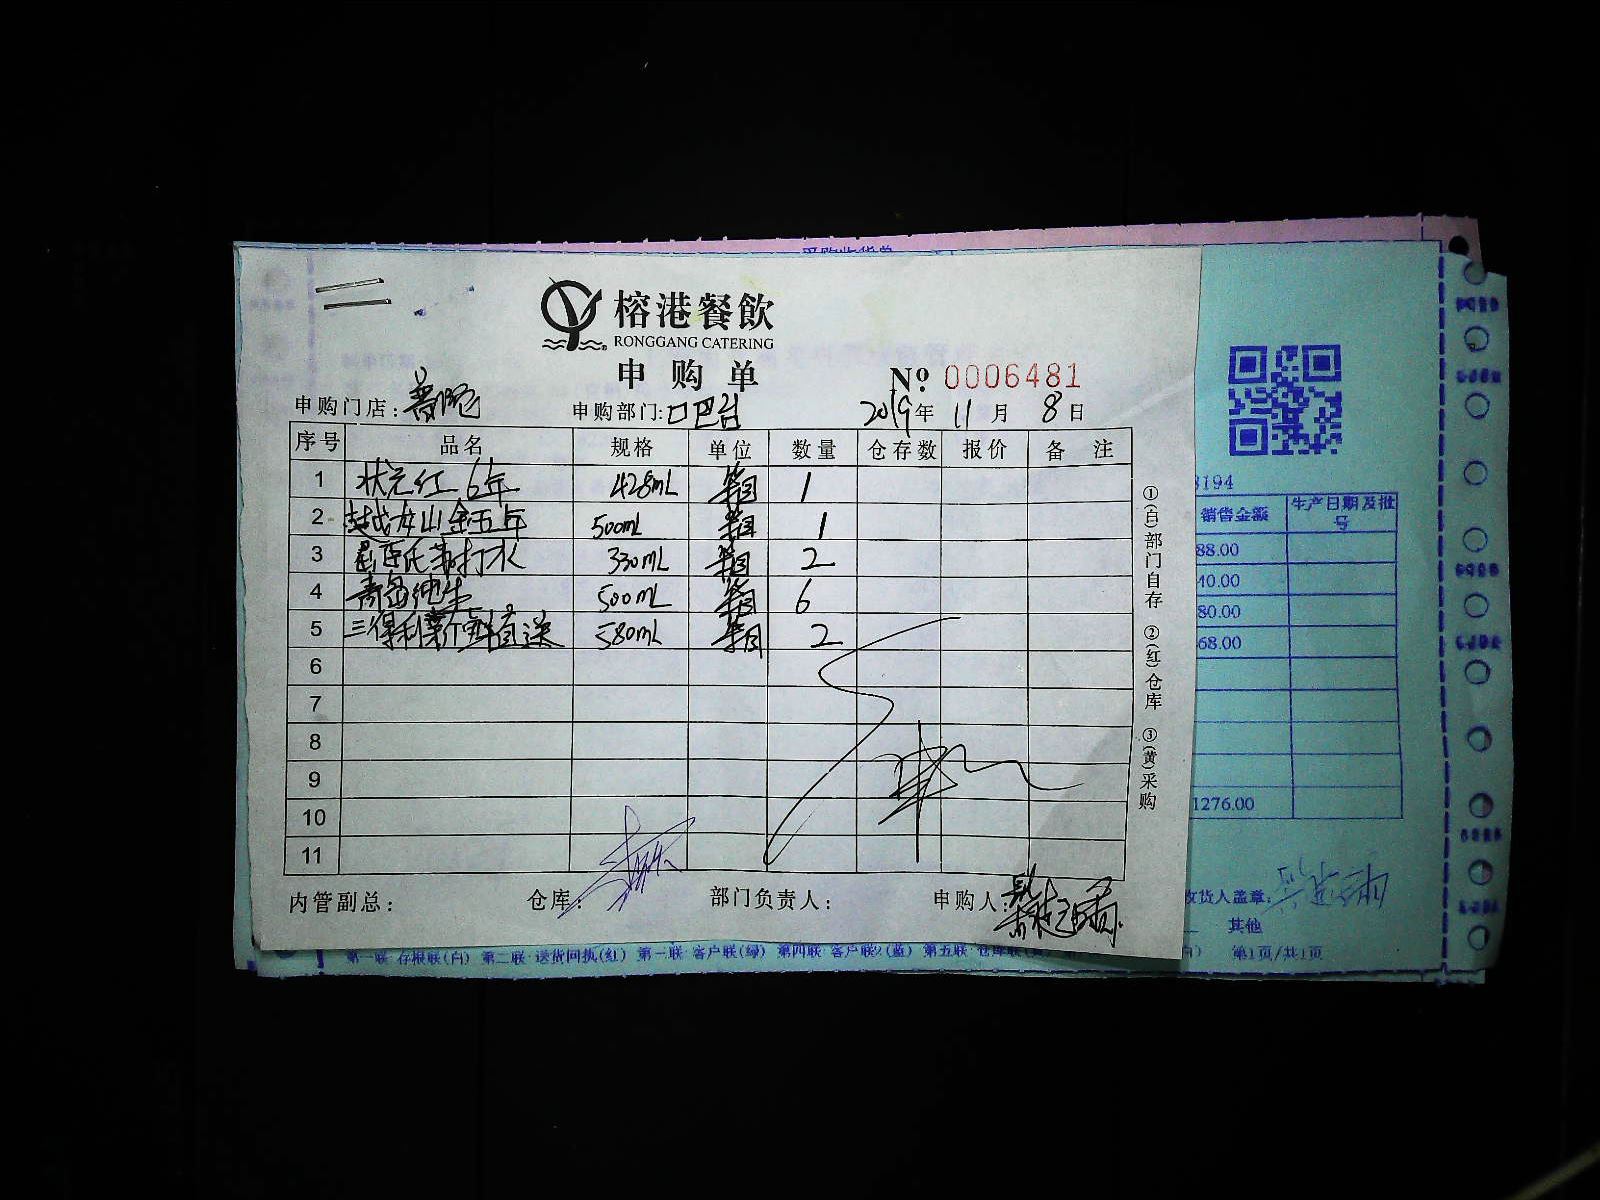 榕港餐飲
RONGGANG CATERING
申购单
№ 0006481
申购门店: 普陀 申购部门: 吧台 2019年 11月 8日
序号 品名 规格 单位 数量 仓存数 报价 备注
1 状元红 6年 428mL 箱 1
2 金五年 500mL 箱 1
3 屈臣氏苏打水 330mL 箱 2
4 青岛纯生 500mL 箱 6
5 三得利 直送 580mL 箱 2
6
7
8
9
10
11
内管副总: 仓库: 部门负责人: 申购人:
①(白)部门自存 ②(红)仓库 ③(黄)采购
采购收货单
3194
销售金额 生产日期及批号
88.00
40.00
80.00
68.00
1276.00
收货人盖章:
其他
第一联 存根联(白) 第二联 送货回执(红) 第一联 客户联(绿) 第四联 客户联2(蓝) 第五联 仓库联
第1页/共1页